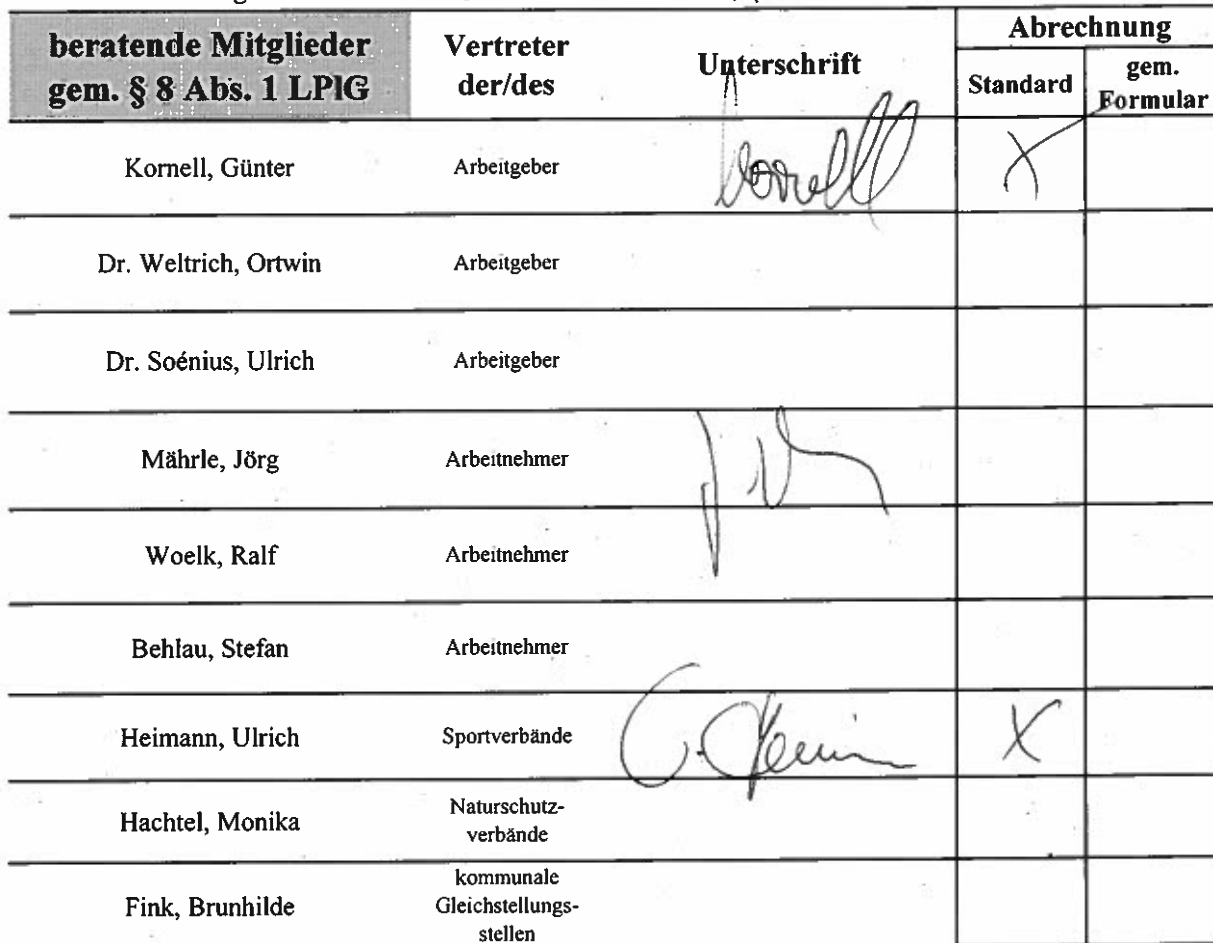 beratende Mitglieder
gem. § 8 Abs. 1 LPlG
Vertreter
der/des
Unterschrift
Abrechnung
Standard
gem.
Formular
Kornell, Günter
Arbeitgeber
X
Dr. Weltrich, Ortwin
Arbeitgeber
Dr. Soénius, Ulrich
Arbeitgeber
Mährle, Jörg
Arbeitnehmer
Woelk, Ralf
Arbeitnehmer
Behlau, Stefan
Arbeitnehmer
Heimann, Ulrich
Sportverbände
X
Hachtel, Monika
Naturschutz-
verbände
Fink, Brunhilde
kommunale
Gleichstellungs-
stellen